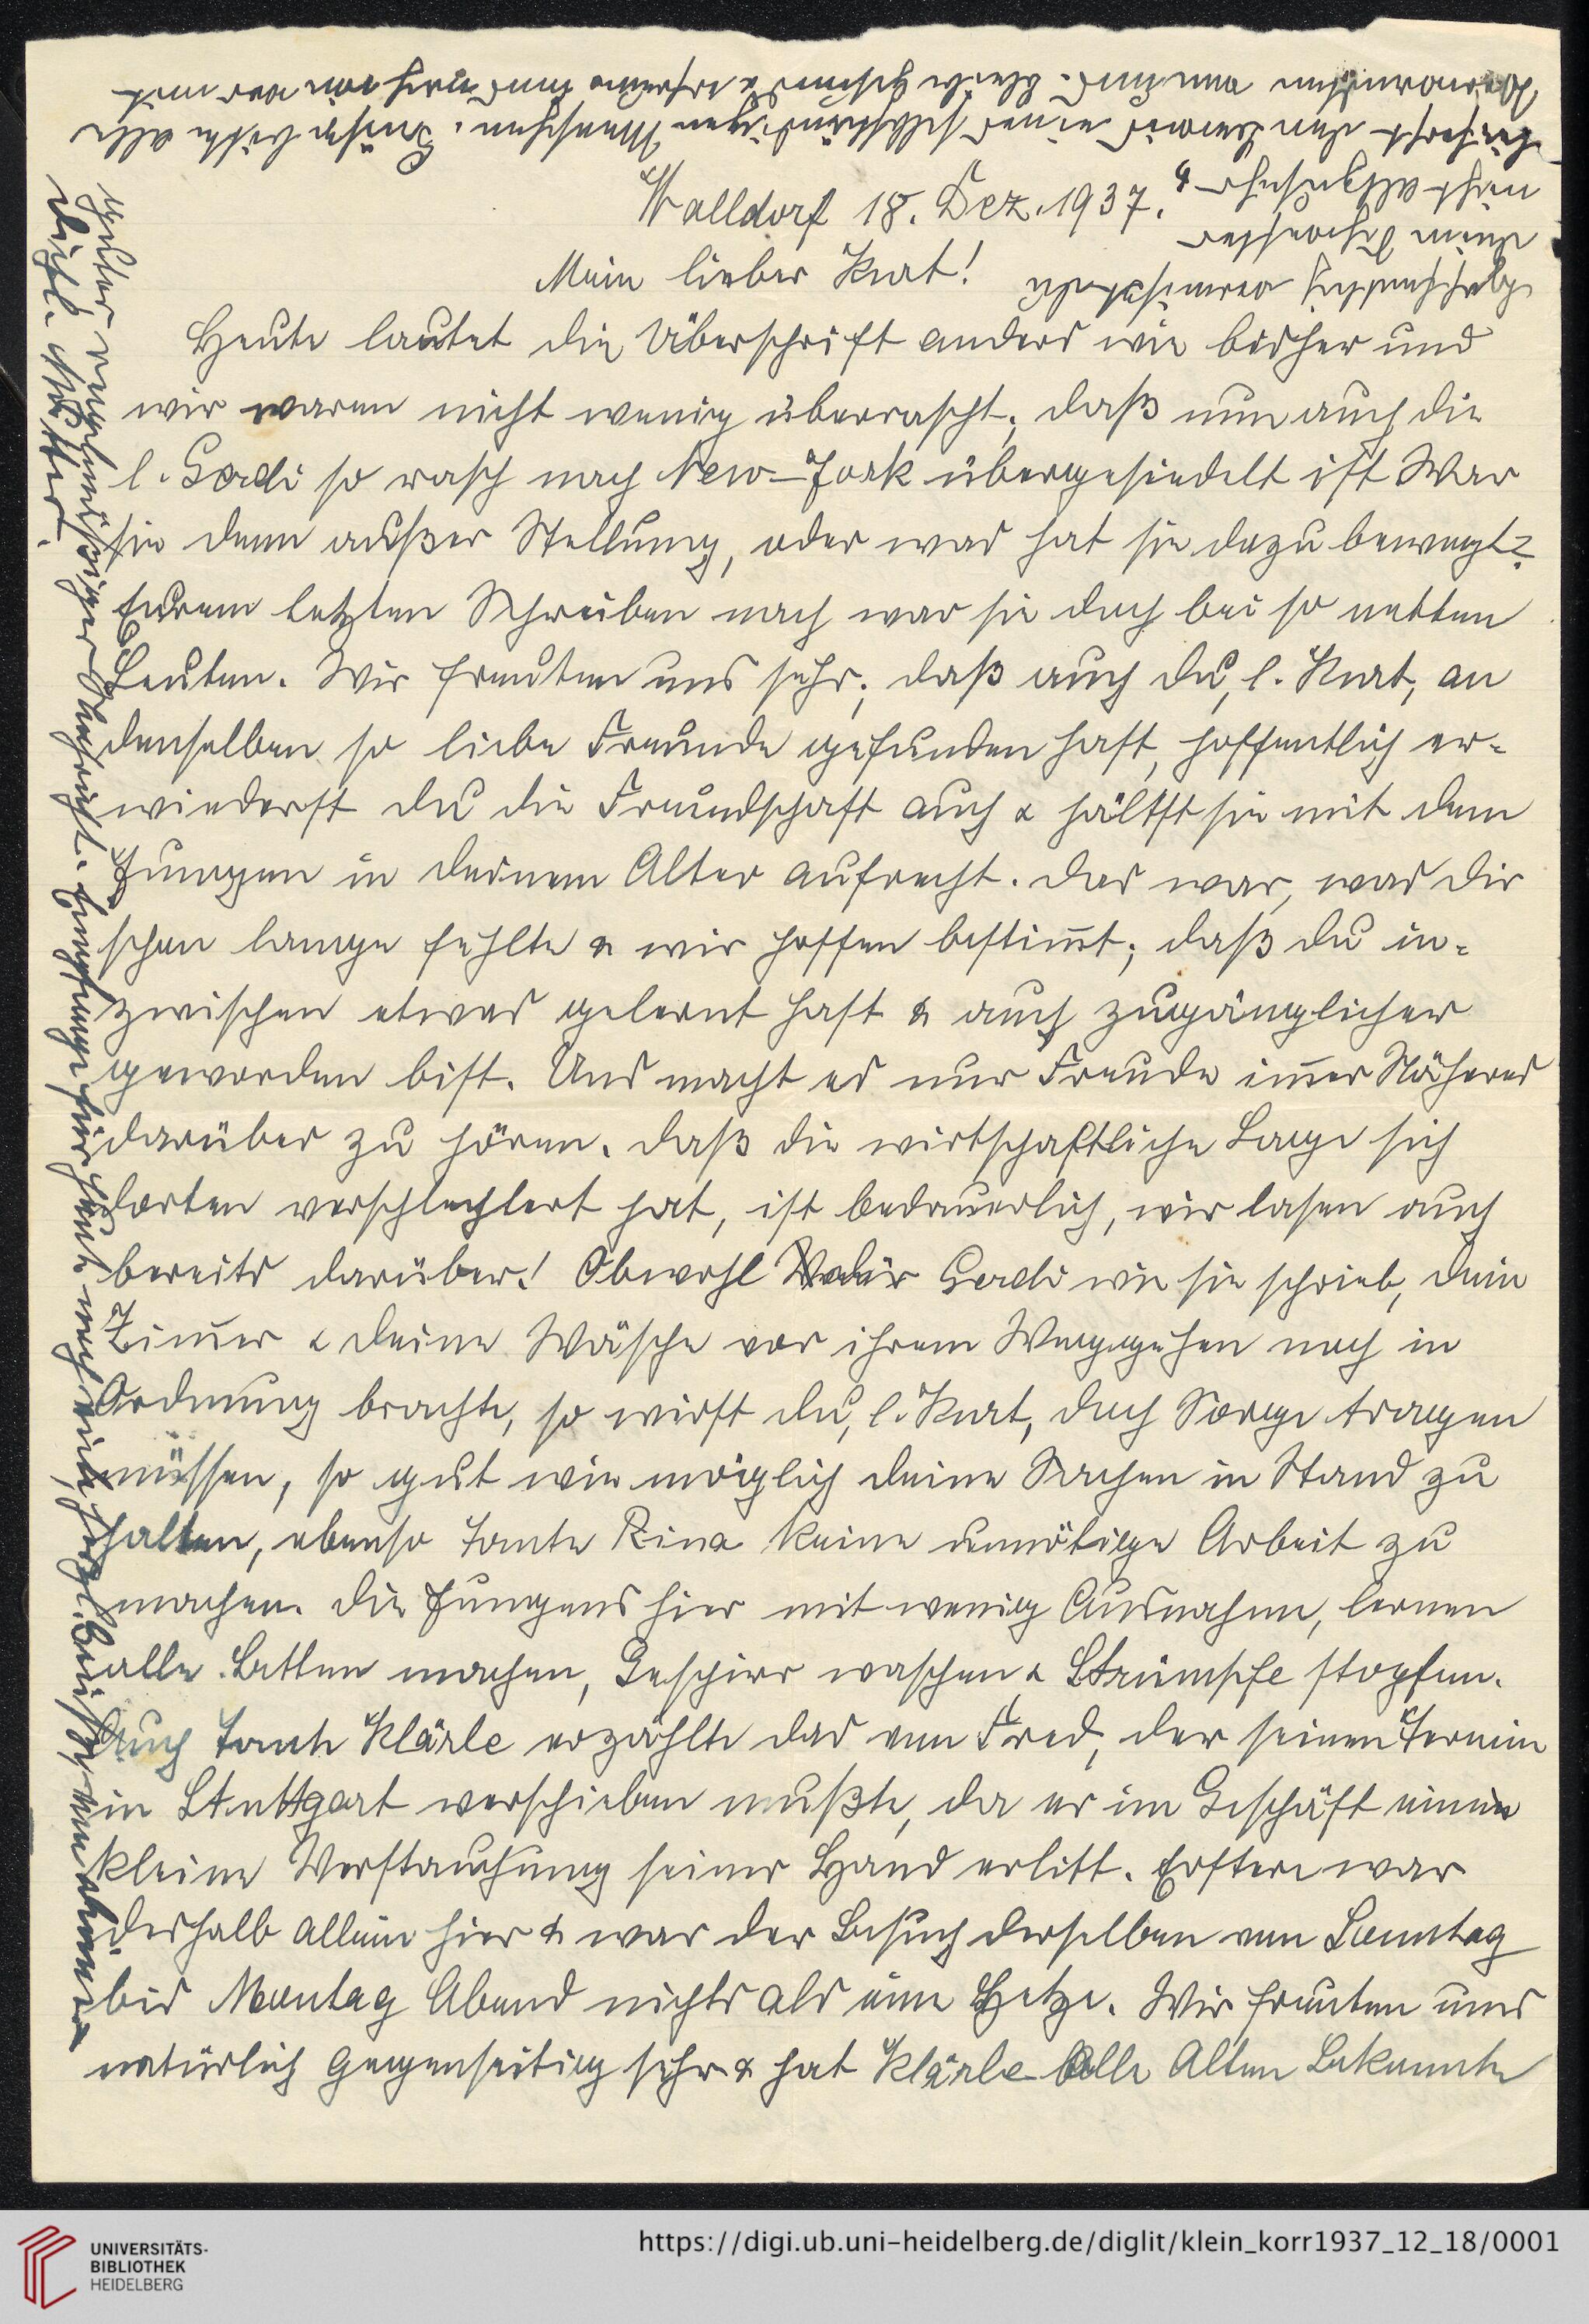 Walldorf 18. Dez. 1937.
Mein lieber Kurt!
Heute lautet die Überschrift anders wie bisher und
wir waren nicht wenig überrascht, daß nun auch die
l. Gerdi so rasch nach New-York übergesiedelt ist War
sie denn außer Stellung, oder was hat sie dazu bewegt?
Eurem letzten Schreiben nach war sie doch bei so netten
Leuten. Wir freuten uns sehr, daß auch du, l. Kurt, an
denselben so liebe Freunde gefunden hast, hoffentlich er-
wiederst du die Freundschaft auch & hältst sie mit dem
Jungen in deinem Alter aufrecht. Das war, was dir
schon lange fehlte & wir hoffen bestim̅t, daß du in-
zwischen etwas gelernt hast & auch zugänglicher
geworden bist. Uns macht es nur Freude im̅er Näheres
darüber zu hören. Daß die wirtschaftliche Lage sich
dorten verschlechtert hat, ist bedauerlich, wir lasen auch
bereits darüber! Obwohl dir Gerdi wie sie schrieb, dein
Zim̅er & deine Wäsche vor ihrem Weggehen noch in
Ordnung brachte, so wirst du, l. Kurt, doch Sorge tragen
müssen, so gut wie möglich deine Sachen in Stand zu
halten, ebenso Tante Rina keine unnötige Arbeit zu
machen. Die Jungens hier mit wenig Ausnahme, lernen
alle Betten machen, Geschirr waschen & Strümpfe stopfen.
Auch Tante Klärle erzählte das von Fred, der seinen Termin
in Stuttgart verschieben mußte, da er im Geschäft eine
kleine Verstauchung seiner Hand erlitt. Erstere war
deshalb allein hier & war der Besuch derselben von Sonntag
bis Montag Abend nichts als eine Hetze. Wir freuten uns
natürlich gegenseitig sehr & hat Klärle alle Alten Bekannte
dein Schwester
nicht
lieferst den Beweis eines selbständigen Menschen. Grüße bitte alle
Verwandten von uns. Bleibe gesund &
guter Nachricht. Empfange für heute noch
deine l. Mutter.
UNIVERSITÄTS-
BIBLIOTHEK
HEIDELBERG
https://digi.ub.uni-heidelberg.de/diglit/klein_korr1937_12_18/0001